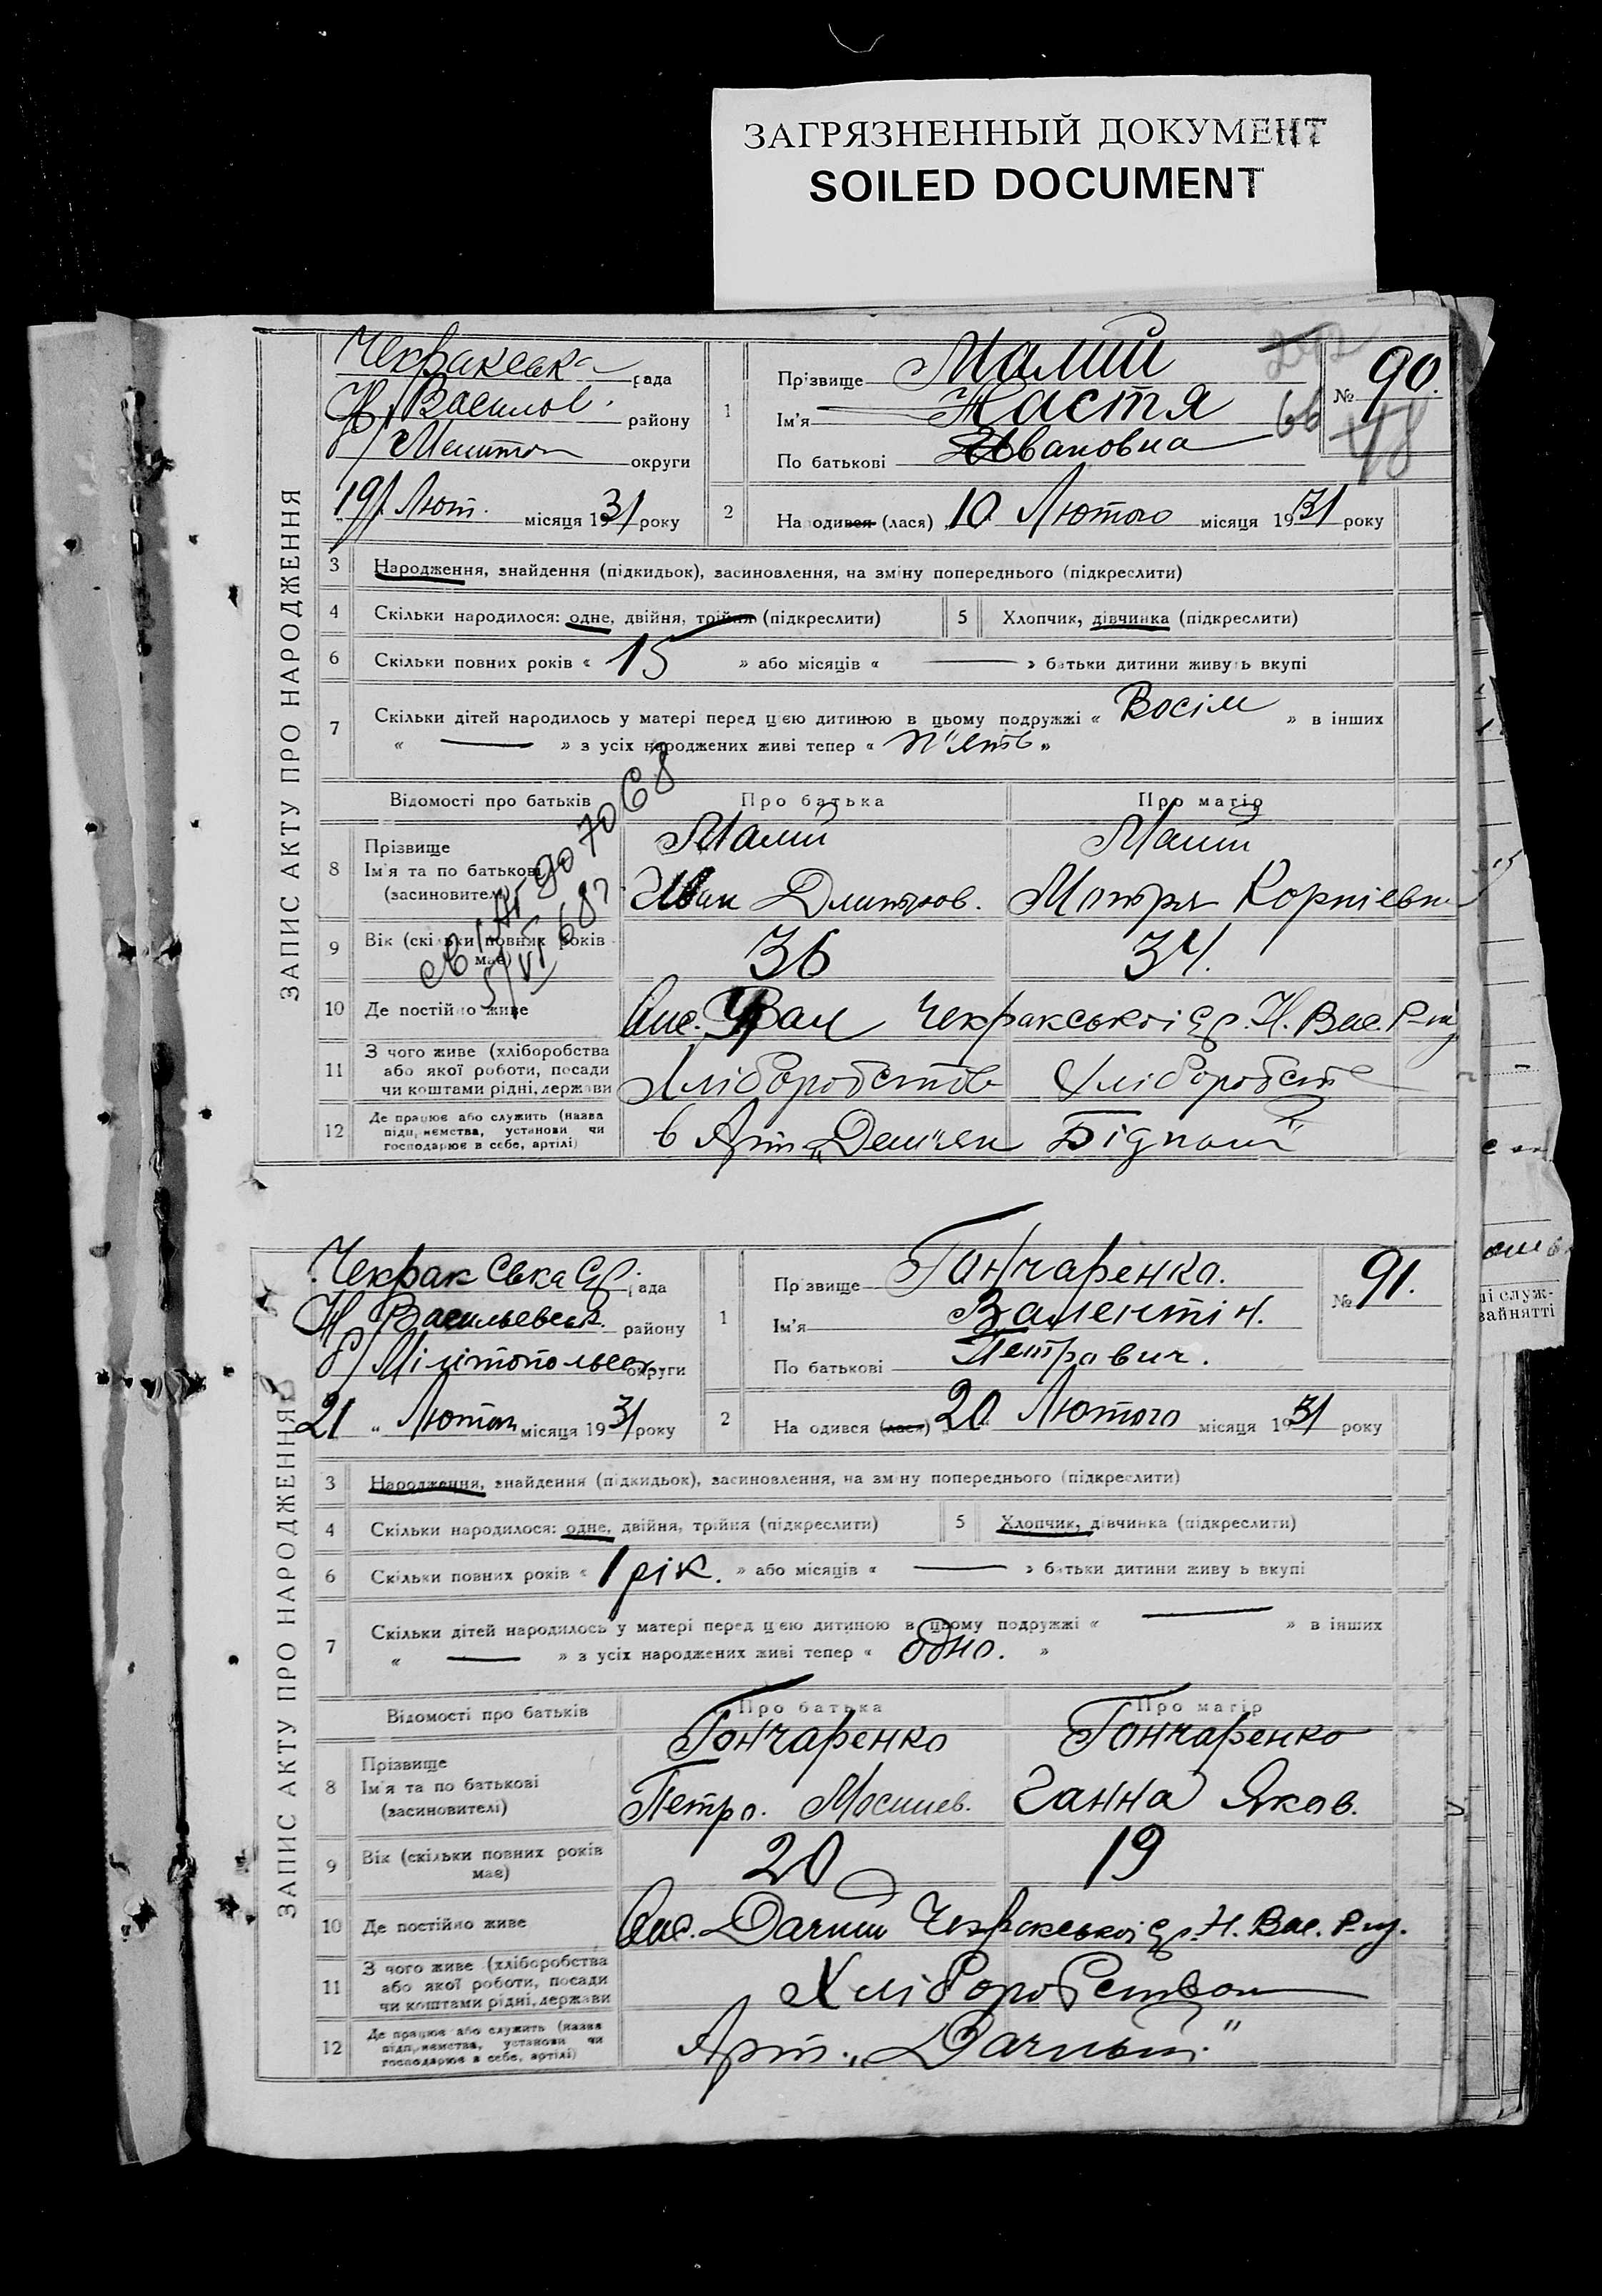 ЗАГРЯЗНЕННЫЙ ДОКУМЕНТ
SOILED DOCUMENT
ЗАПИС АКТУ ПРО НАРОДЖЕННЯ
Чекракська рада
Н/Василов. району
б/Мелітоп округи
19/ Лют. місяця 1931 року
1 Прізвище Малий
Ім'я Настя
По батькові Ивановна
№ 90.
66
48
2 Народився (лася) 10 Лютого місяця 1931 року
3 Народження, знайдення (підкидьок), засиновлення, на зміну попереднього (підкреслити)
4 Скільки народилося: одне, двійня, трійня (підкреслити) 5 Хлопчик, дівчинка (підкреслити)
6 Скільки повних років « 15 » або місяців « — » батьки дитини живуть вкупі
7 Скільки дітей народилось у матері перед цією дитиною в цьому подружжі « Восім » в інших
« — » з усіх народжених живі тепер « П'ять »
Відомості про батьків Про батька Про матір
8 Прізвище Малий Малий
Ім'я та по батькові Иван Дмитров. Мотря Корніевн
(засновителі)
9 Вік (скільки повних років має) 36 34.
10 Де постійно живе Вис. Чекракської с/р. Н. Вас. Р-ну
11 З чого живе (хліборобства
або якої роботи, посади
чи коштами рідні, держави Хліборобств Хліборобств
12 Де працює або служить (назва
підприємства, установи чи
господарює в себе, артілі) в Арт. „Дем'ян Бідний"
ЗАПИС АКТУ ПРО НАРОДЖЕННЯ
Чекракська С/р. рада
Н Васильевськ. району
б/Мілітопольськ округи
21 „ Лютого місяця 1931 року
1 Прізвище Гончаренко.
Ім'я Валентін.
По батькові Петрович.
№ 91.
2 Народився (лася) 20 Лютого місяця 1931 року
3 Народження, знайдення (підкидьок), засиновлення, на зміну попереднього (підкреслити)
4 Скільки народилося: одне, двійня, трійня (підкреслити) 5 Хлопчик, дівчинка (підкреслити)
6 Скільки повних років « 1 рік. » або місяців « — » батьки дитини живуть вкупі
7 Скільки дітей народилось у матері перед цією дитиною в цьому подружжі « — » в інших
« — » з усіх народжених живі тепер « одно. »
Відомості про батьків Про батька Про матір
8 Прізвище Гончаренко Гончаренко
Ім'я та по батькові Петро. Мосиев. Ганна Яков.
(засиновителі)
9 Вік (скільки повних років має) 20 19
10 Де постійно живе Вис. Дачний Чекракської с/р. Н. Вас. Р-ну.
11 З чого живе (хліборобства
або якої роботи, посади
чи коштами рідні, держави Хліборобством
12 Де працює або служить (назва
підприємства, установи чи
господарює в себе, артілі) Арт. „Дачный"